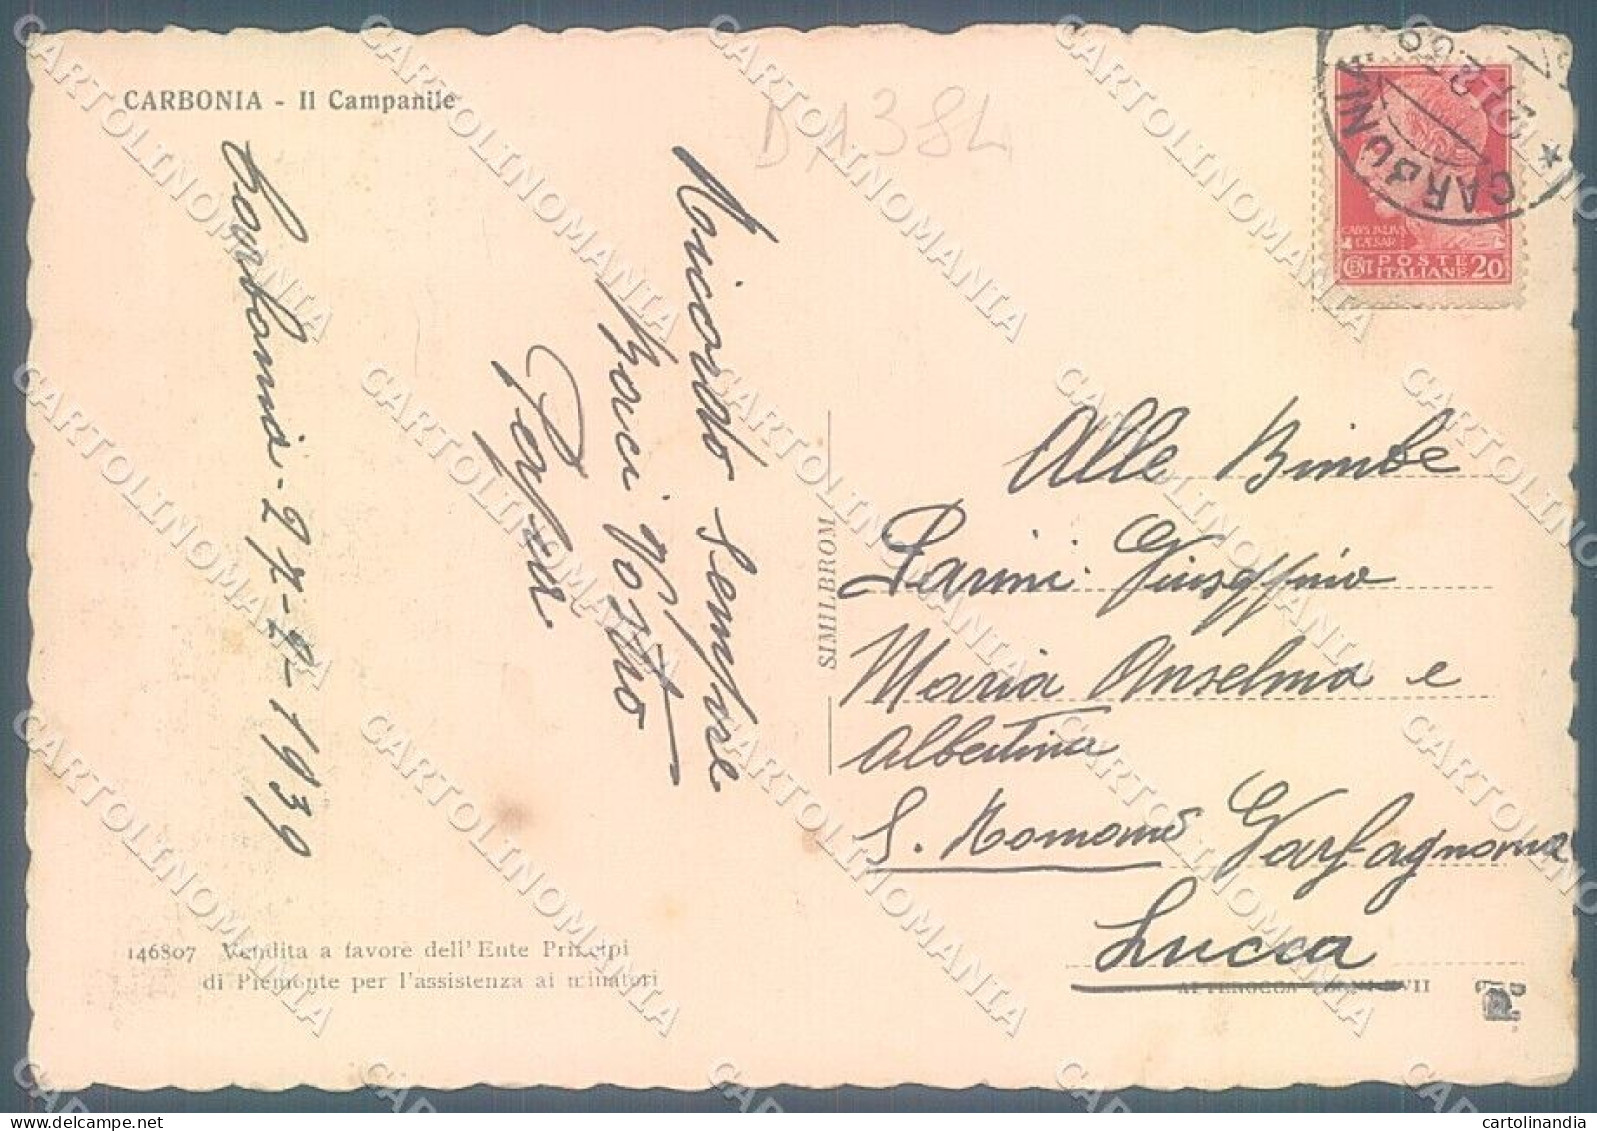 CARBONIA - Il Campanile
D A 384
Carbonia - 27 - 2 - 1939
Ricordo sempre
Baci Vostro
CARBONIA
CAIVS IVLIVS
CAESAR
CENT. POSTE
ITALIANE 20
Alle Bimbe
Parini: Giuseppina
Maria Anselma e
Albertina
S. Romano Garfagnana
Lucca
SIMILBROM
146807 Vendita a favore dell'Ente Principi
di Piemonte per l'assistenza ai minatori
ALTEROCCA
CARTOLINOMANIA
cartolinandia